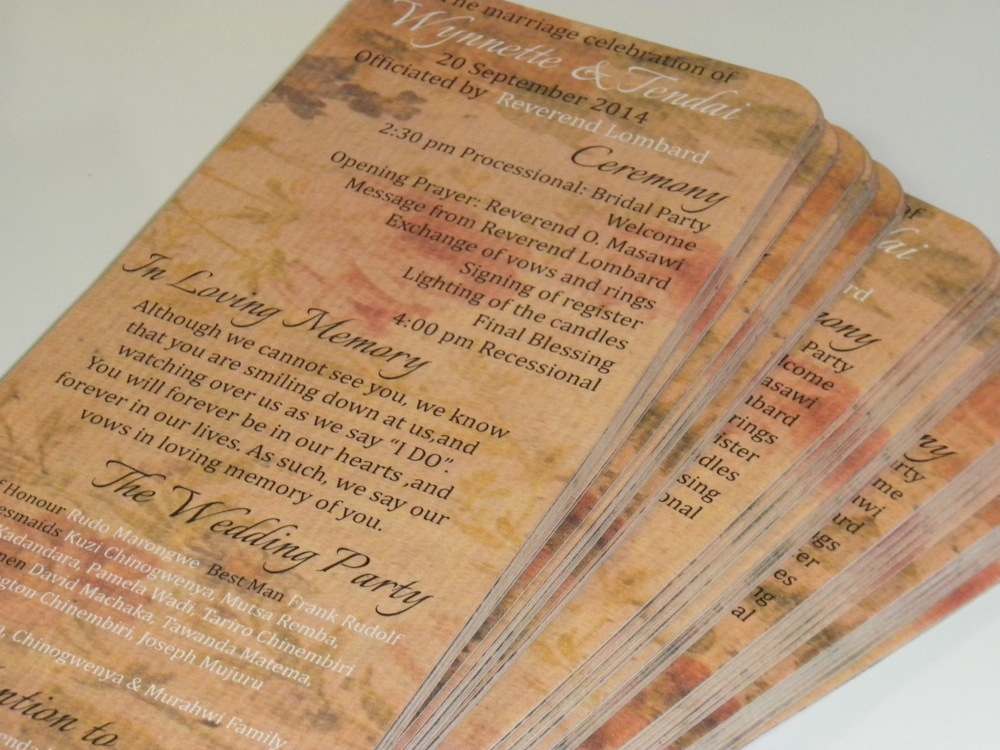 The marriage celebration of
Wynnette & Tendai
20 September 2014
Officiated by Reverend Lombard
Ceremony
2:30 pm Processional: Bridal Party
Welcome
Opening Prayer: Reverend O. Masawi
Message from Reverend Lombard
Exchange of vows and rings
Signing of register
Lighting of the candles
Final Blessing
4:00 pm Recessional
In Loving Memory
Although we cannot see you, we know
that you are smiling down at us,and
watching over us as we say "I DO".
You will forever be in our hearts ,and
forever in our lives. As such, we say our
vows in loving memory of you.
The Wedding Party
Honour Rudo Marongwe Best Man Frank Rudolf
Kuzi Chinogwenya, Mutsa Remba,
Kadandara, Pamela Wadi, Tariro Chinembiri
David Machaka, Tawanda Matema,
Chinembiri, Joseph Mujuru
Chinogwenya & Murahwi Family
to